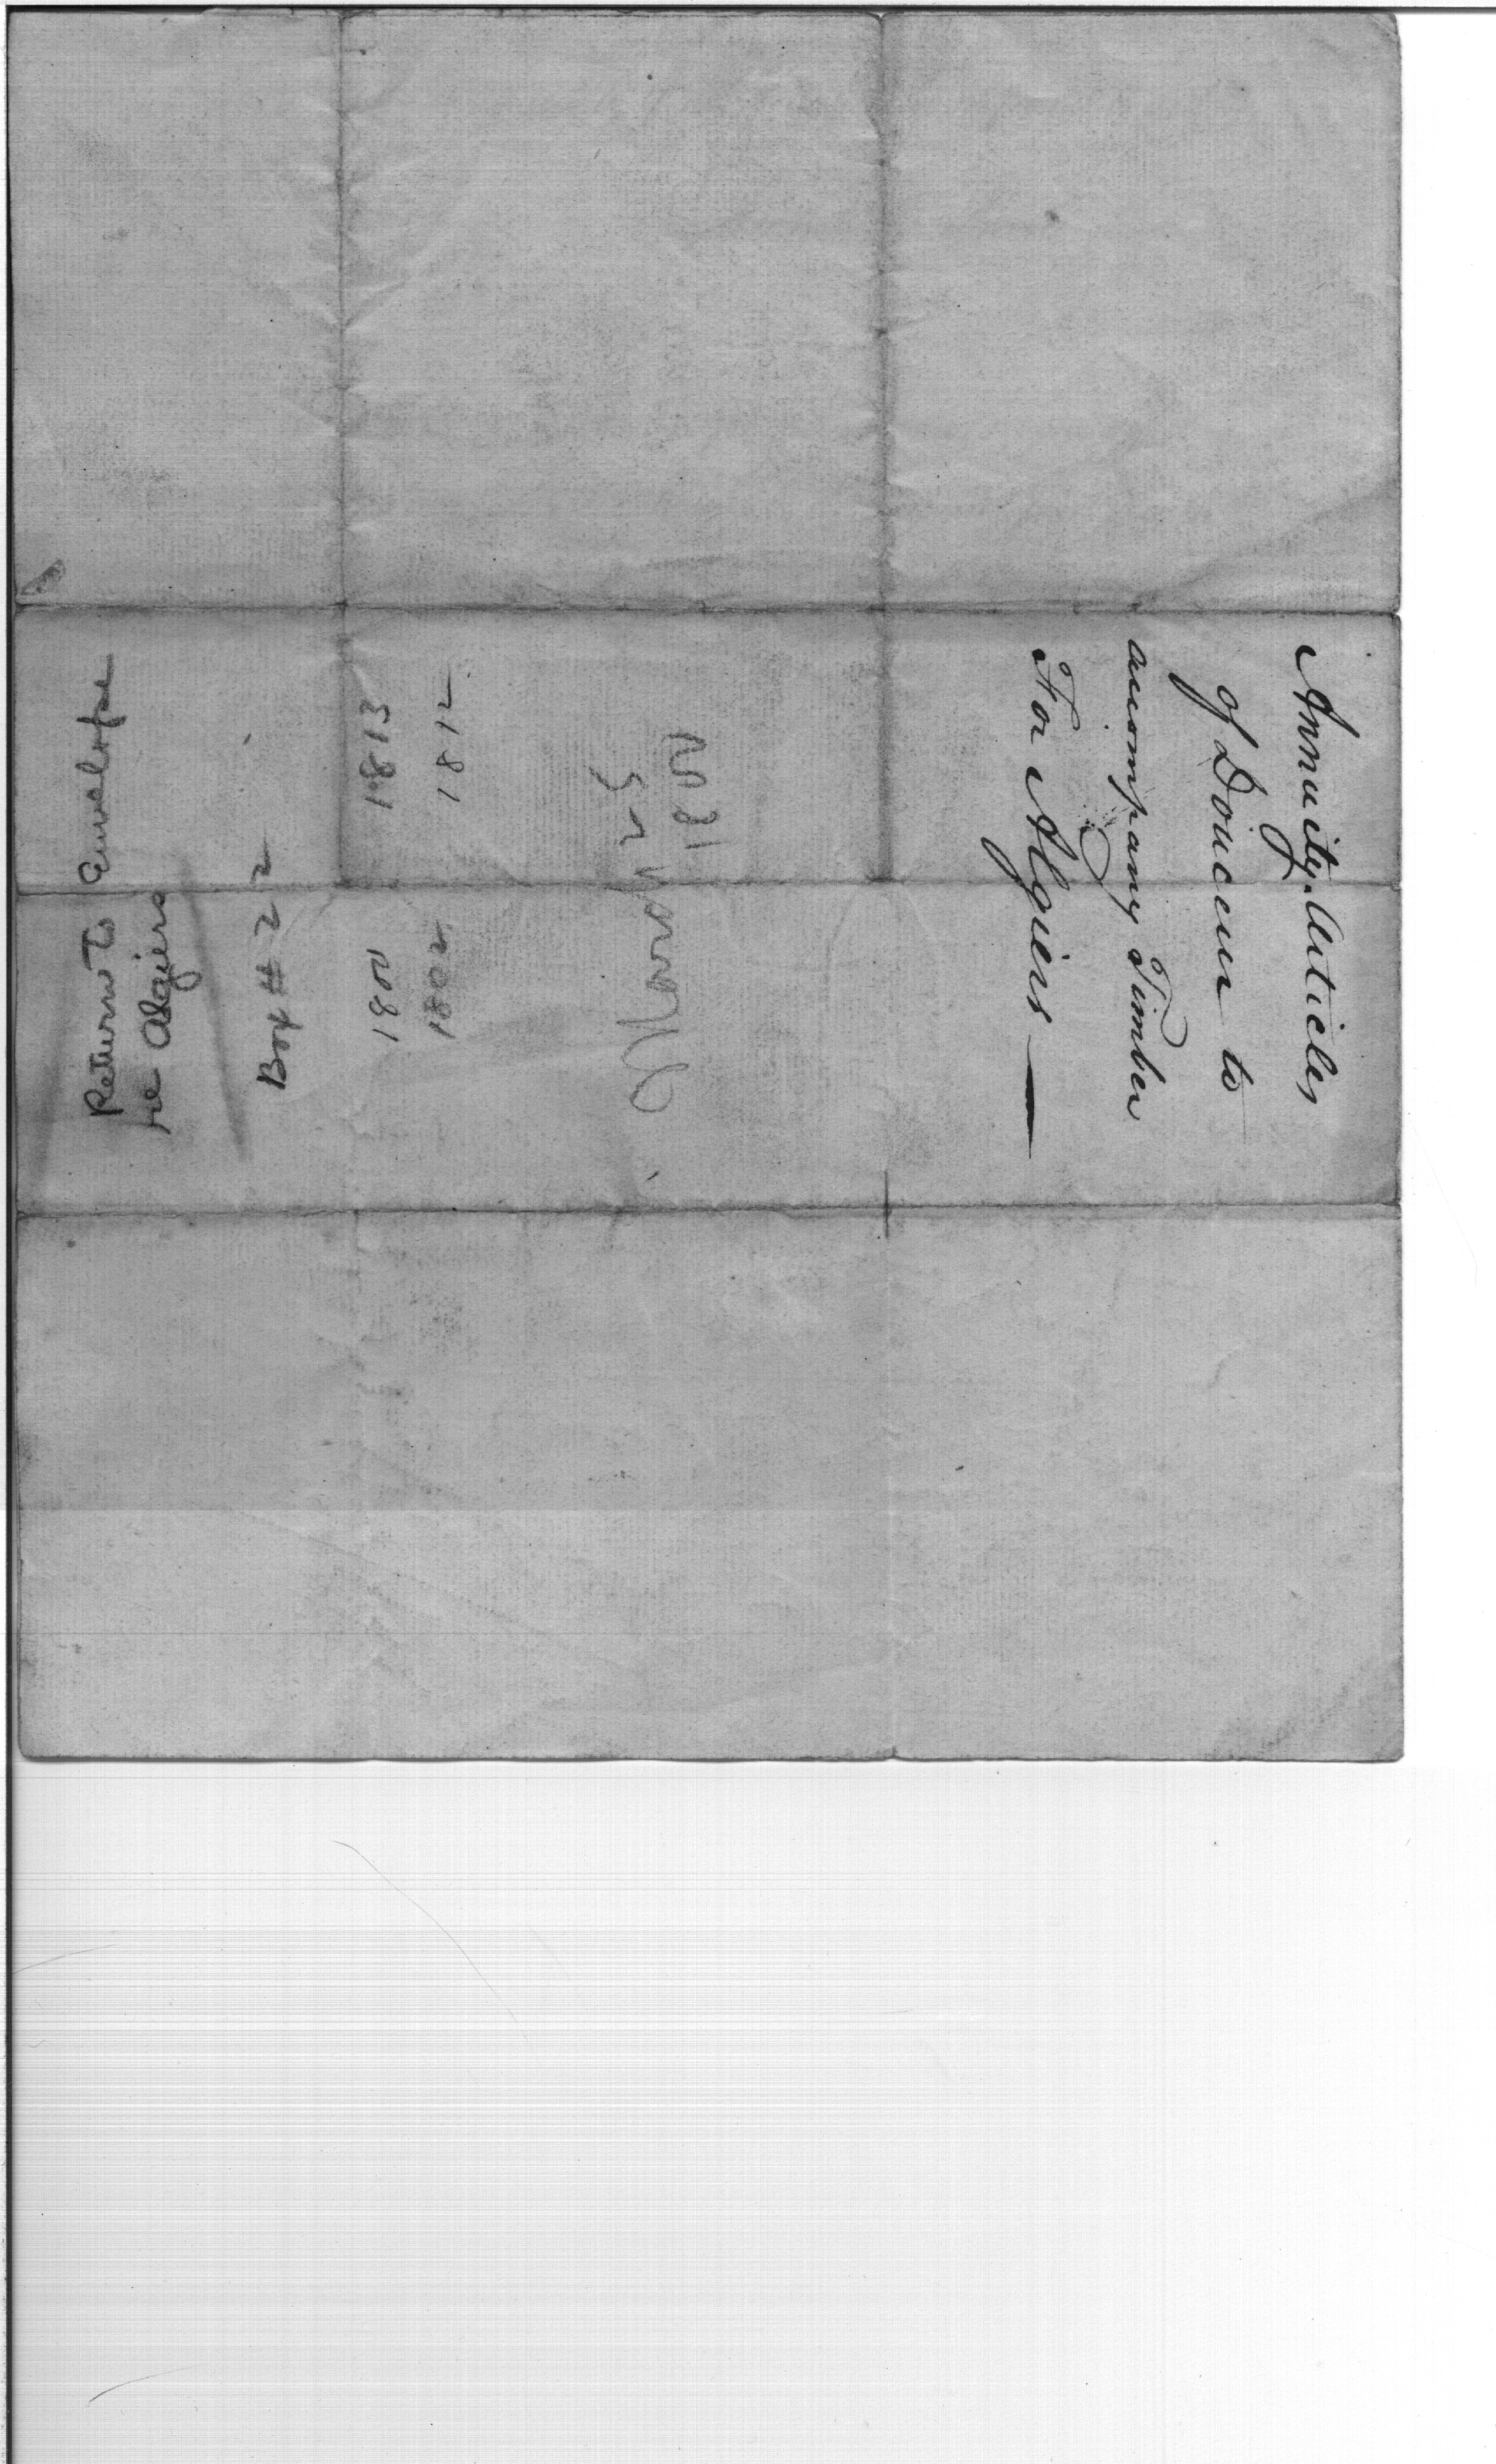 Annuity. Articles
of Douceur to
accompany Timber
For Algiers —
Return to Envelope
re Algiers
Box # 22
1800 1813
1802 1812
March 25